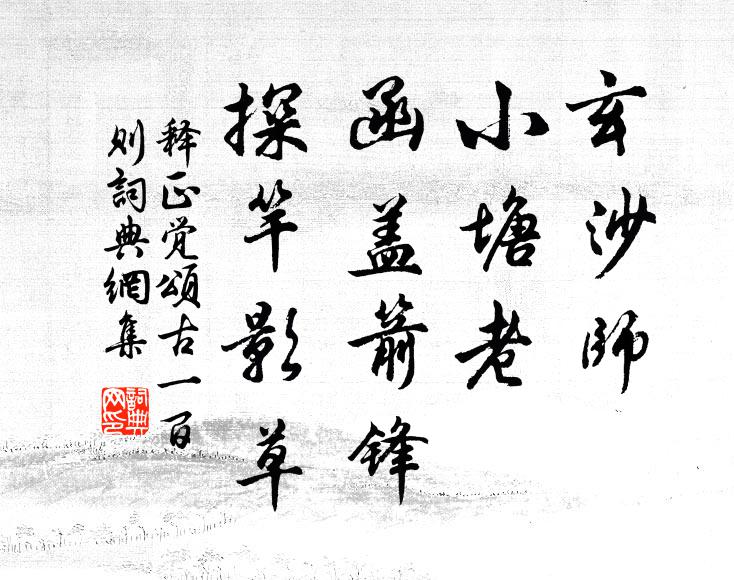 玄沙師
小塘老
函盖箭锋
探竿影草
释正觉頌古一百
则詞典網集
詞典网印